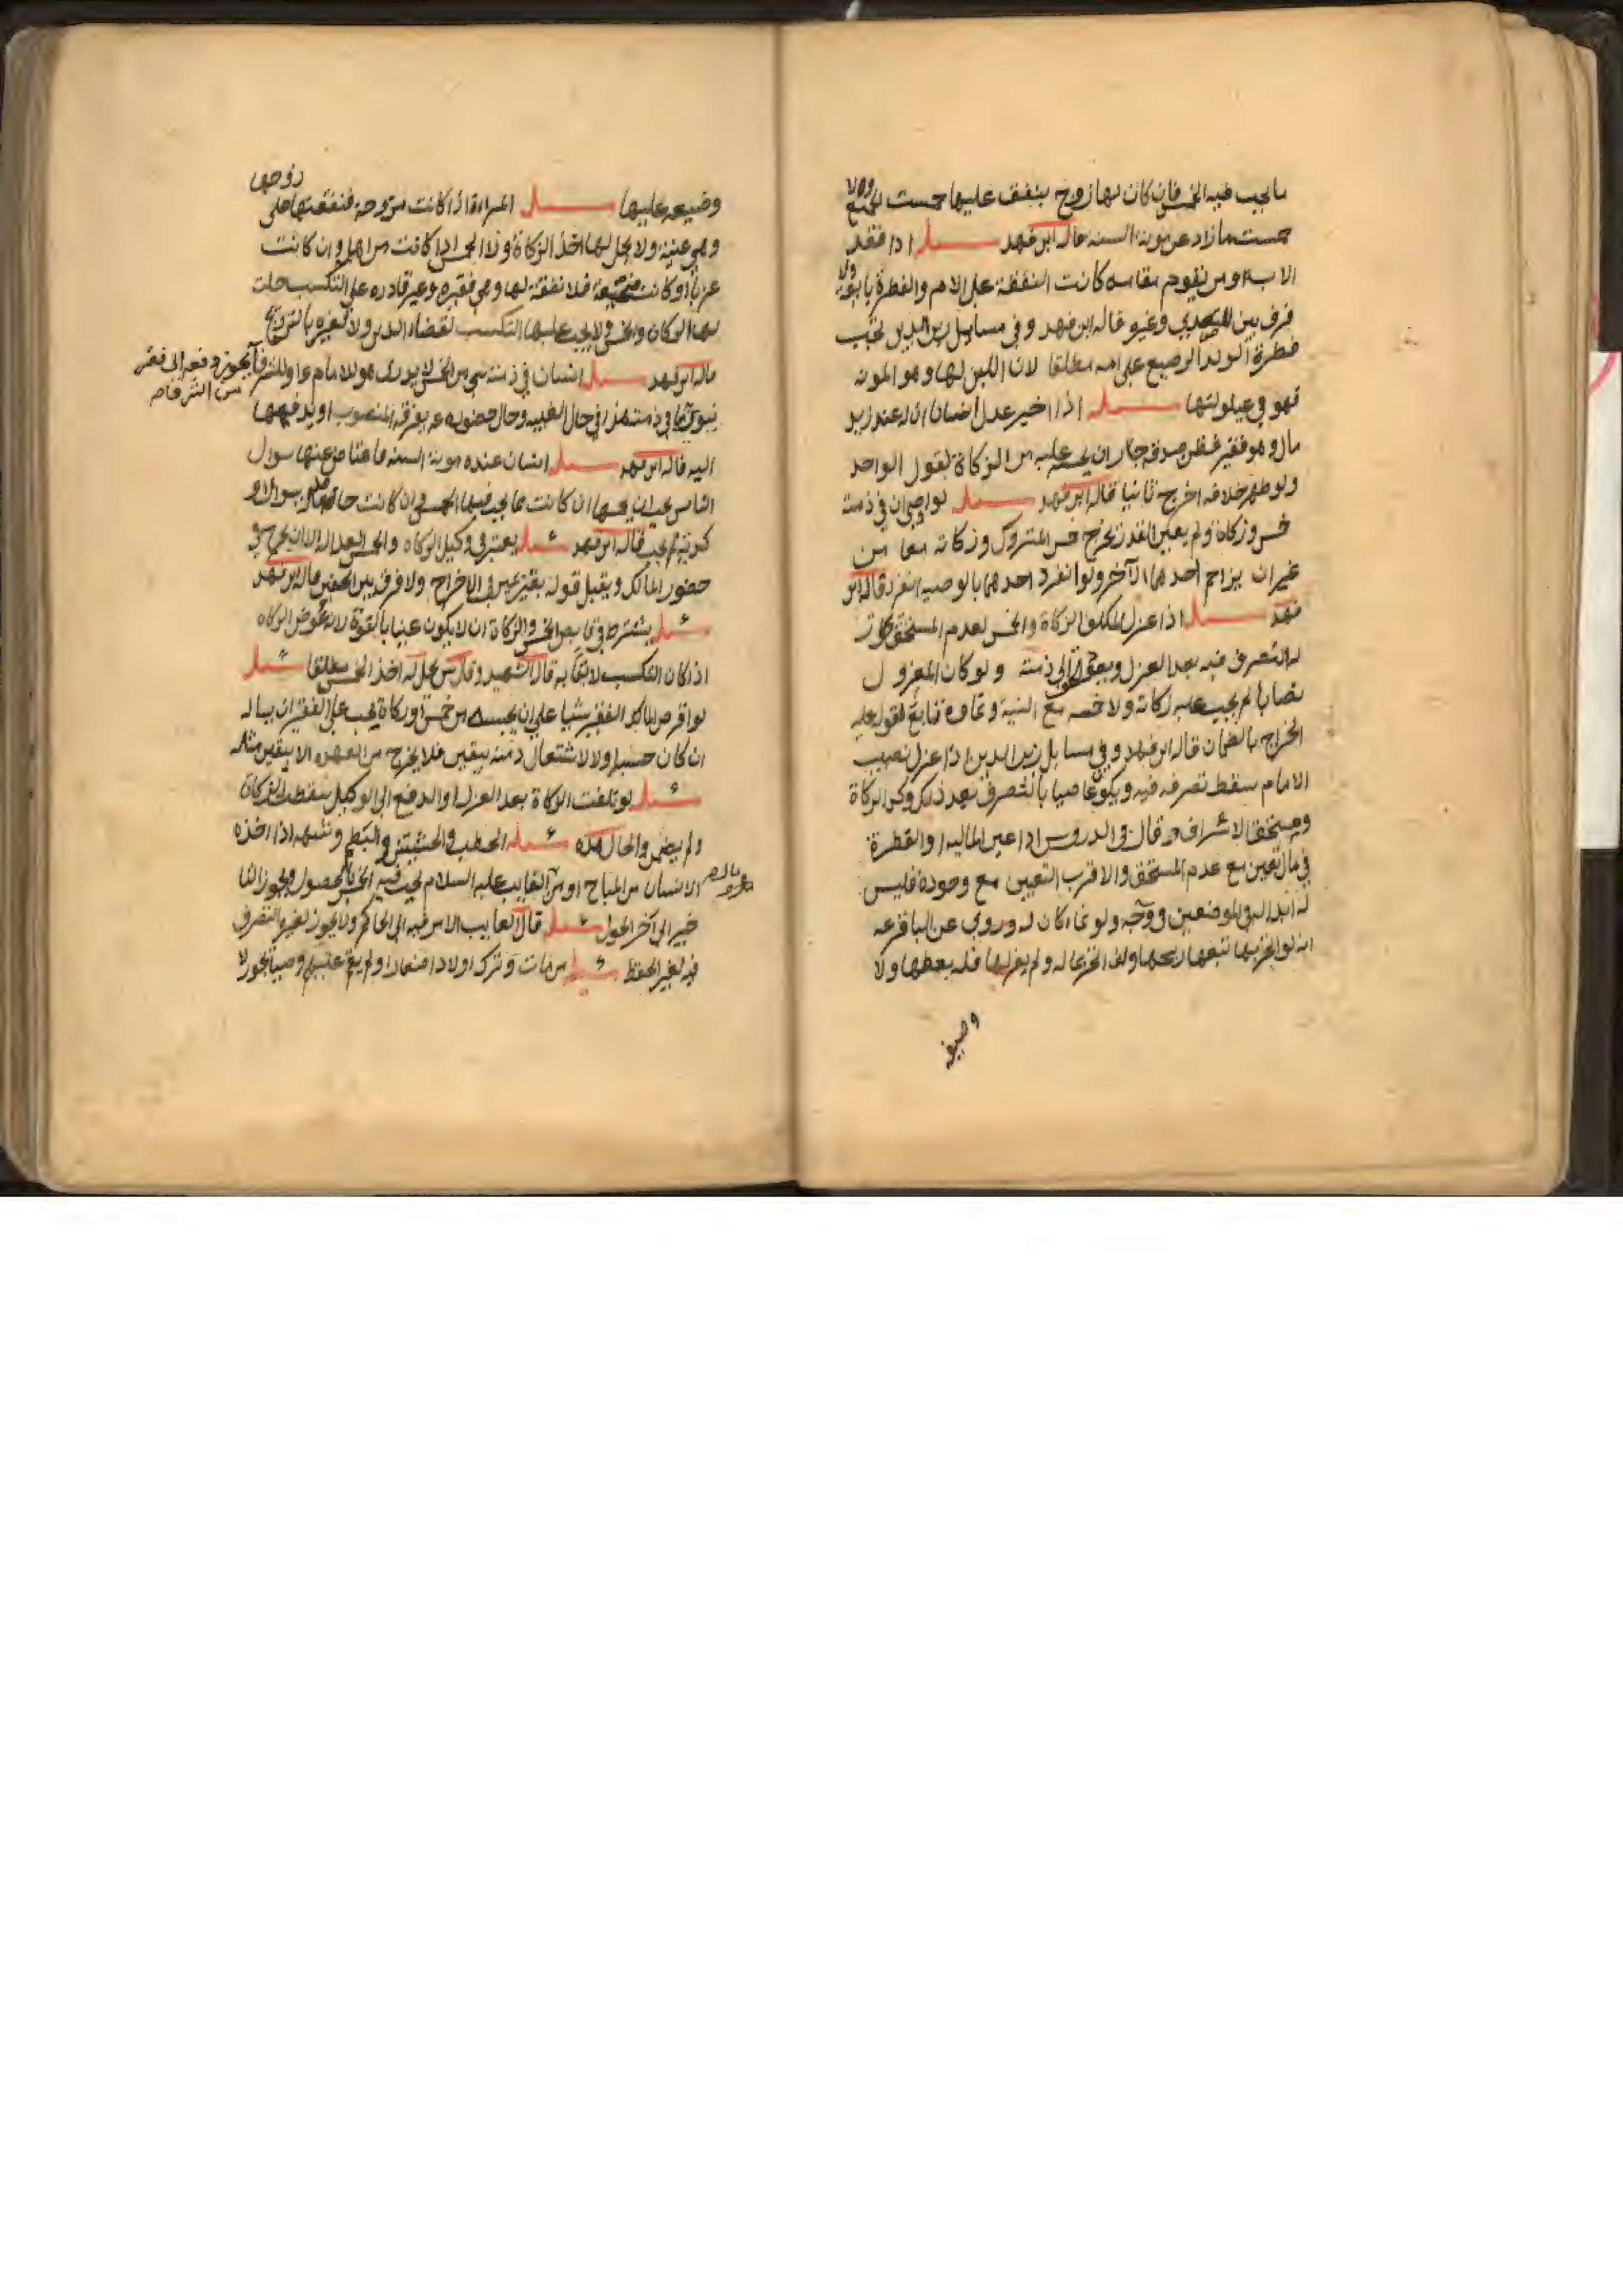 ما يجب فيه الخمس فان كان لها زوج ينفق عليها خمست الجميع والا
خمست ما زاد عن مونة السنه قاله ابن فهد مسئله اذا فقد
الاب ومن يقوم مقامه كانت النفقة على الام والفطرة تابعة ولا
فرق بين وغيره قاله ابن فهد وفي مسايل زين الدين تجب
فطرة الولد الرضيع على امه مطلقا لان اللبن لها وهو المونه
فهو في عيلولتها مسئله اذا اخبر عدل انسان ان له عند زيد
مال وهو فقير فظن صدقه جاز ان يحتسبه عليه من الزكاة لقول الواحد
ولو ظهر خلافه اخرج ثانيا قاله ابن فهد مسئله لو اوصى ان في ذمته
خمس وزكاة ولم يعين القدر تخرج خمس المتروك وزكاته معا من
غير ان يزاحم احدهما الآخر ولو انفرد احدهما بالوصيه انفرد قاله ابن
فهد مسئله اذا عزل المكلف الزكاة والخمس لعدم المستحق جاز
له التصرف فيه بعد العزل ويعود الحق الى ذمته ولو كان المعزول
نصابا لم يجب عليه زكاته ولا خمسه مع النية ونماوه تابع لقوله عليه
الخراج بالضمان قاله ابن فهد وفي مسايل زين الدين اذا عزل نصيب
الامام سقط تصرفه فيه ويكون عاصيا بالتصرف بعد ذلك وكذا الزكاة
ومستحق الاشراف وقال في الدروس اذا عين الماليه او الفطرة
في مال تعين مع عدم المستحق والاقرب التعيين مع وجوده فليس
له ابداله في الموضعين ووجه ولو نما كان له وروي عن الباقر عه
انه لو اتجر بها تبعها ربحها ولو اتجر بماله ولم يعزلها فله بعضها ولا
وضيعه
وضيعه عليها مسئله المراة اذا كانت مزوجة فنفقتها على زوجها
وهي غنية ولا يحل لها اخذ الزكاة ولا الخمس اذا كانت من اهله وان كانت
عزبا او كانت متمتعة فلا نفقة لها وهي فقيره وغير قادره على التكسب حلت
لها الزكاة والخمس ولا يجب عليها التكسب لقضاء الدين ولا لغيره بالتزويج
قاله ابن فهد مسئله انسان في ذمته شي من الخمس لا يدري هو للامام عه او للشرفا يجوز دفعه الى فقير
من الشرفاء
في ذمته هذا في حال الغيبه وحال حضوره عه يفرقه المنصوب او يدفعها
اليه قاله ابن فهد مسئله انسان عنده مونة السنه فاعتاض عنها سوال
الناس ان كانت مما يجب فيها الخمس وان كانت حاصله بسوال او
كدية لم يجب قاله ابن فهد مسئله يعتبر في وكيل الزكاة والخمس العداله الا ان يخرج في
حضور المالك ويقبل قوله بغير يمين في الاخراج ولا فرق بين الحقين قاله ابن فهد
مسئله يشترط في قابض الخمس والزكاة ان لا يكون غنيا بالقوة لانه عوض الزكاه
اذا كان التكسب لائقا به قال الشهيد وقال س يحل له اخذ الخمس مطلقا مسئله
لو اقرض المالك الفقير شيا على ان يحبسه من خمس او زكاة يجب على الفقير ان يساله
ان كان حسبه او لا لاشتغال ذمته بيقين فلا يخرج من العهده الا بيقين مثله
مسئله لو تلفت الزكاة بعد العزل او الدفع الى الوكيل سقطت الزكاة
ولم يضمن والحال هذه مسئله الحطب والحشيش والبط وشبهه اذا اخذه
الانسان من المباح او من الغايب عليه السلام يجب فيه الخمس بالحصول ويجوز التا
خير الى آخر الحول مسئله قال الغايب الامر فيه الى الحاكم ولا يجوز لغيره التصرف
فيه لغير الحفظ مسئله من مات وترك اولادا صغارا ولم يقم عليهم وصيا يجوز لا